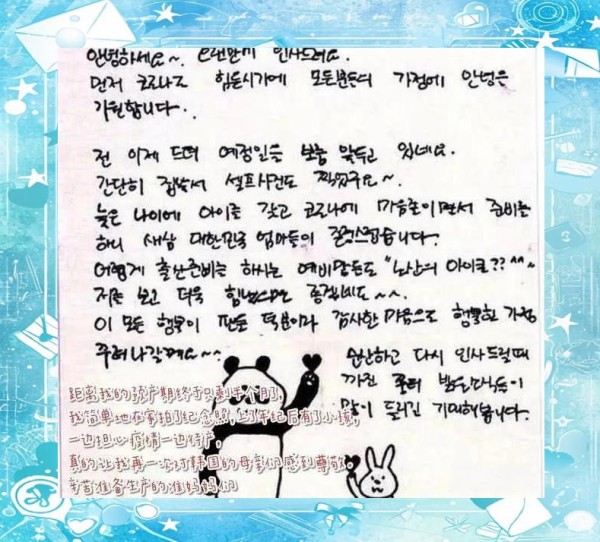 안녕하세요~. 오랜만에 인사드려요.
먼저 코로나로 힘든시기에 모든분들의 가정에 안녕을
기원합니다.
전 이제 드뎌 예정일을 보름 앞두고 있네요.
간단히 집에서 셀프사진도 찍었구요~.
늦은 나이에 아이를 갖고 코로나에 마음졸이면서 준비를
하니 새삼 대한민국 엄마들이 존경스럽습니다.
어떻게 출산준비는 하시는 예비맘들도 "노산의 아이콘??^^~
저를 보고 더욱 힘내셨으면 좋겠네요~~.
이 모든 행복이 팬들 덕분이라 감사한 마음으로 행복한 가정
꾸려나갈께요~~
순산하고 다시 인사드릴때
까진 코로나 발원지들이
많이 들리길 기대해봅니다.
距离我的预产期终于只剩半个月了,
我简单地在家拍了纪念照,上了年纪后有了小孩,
一边担心疫情一边待产,
真的让我再一次对韩国的母亲们感到尊敬,
辛苦准备生产的准妈妈们